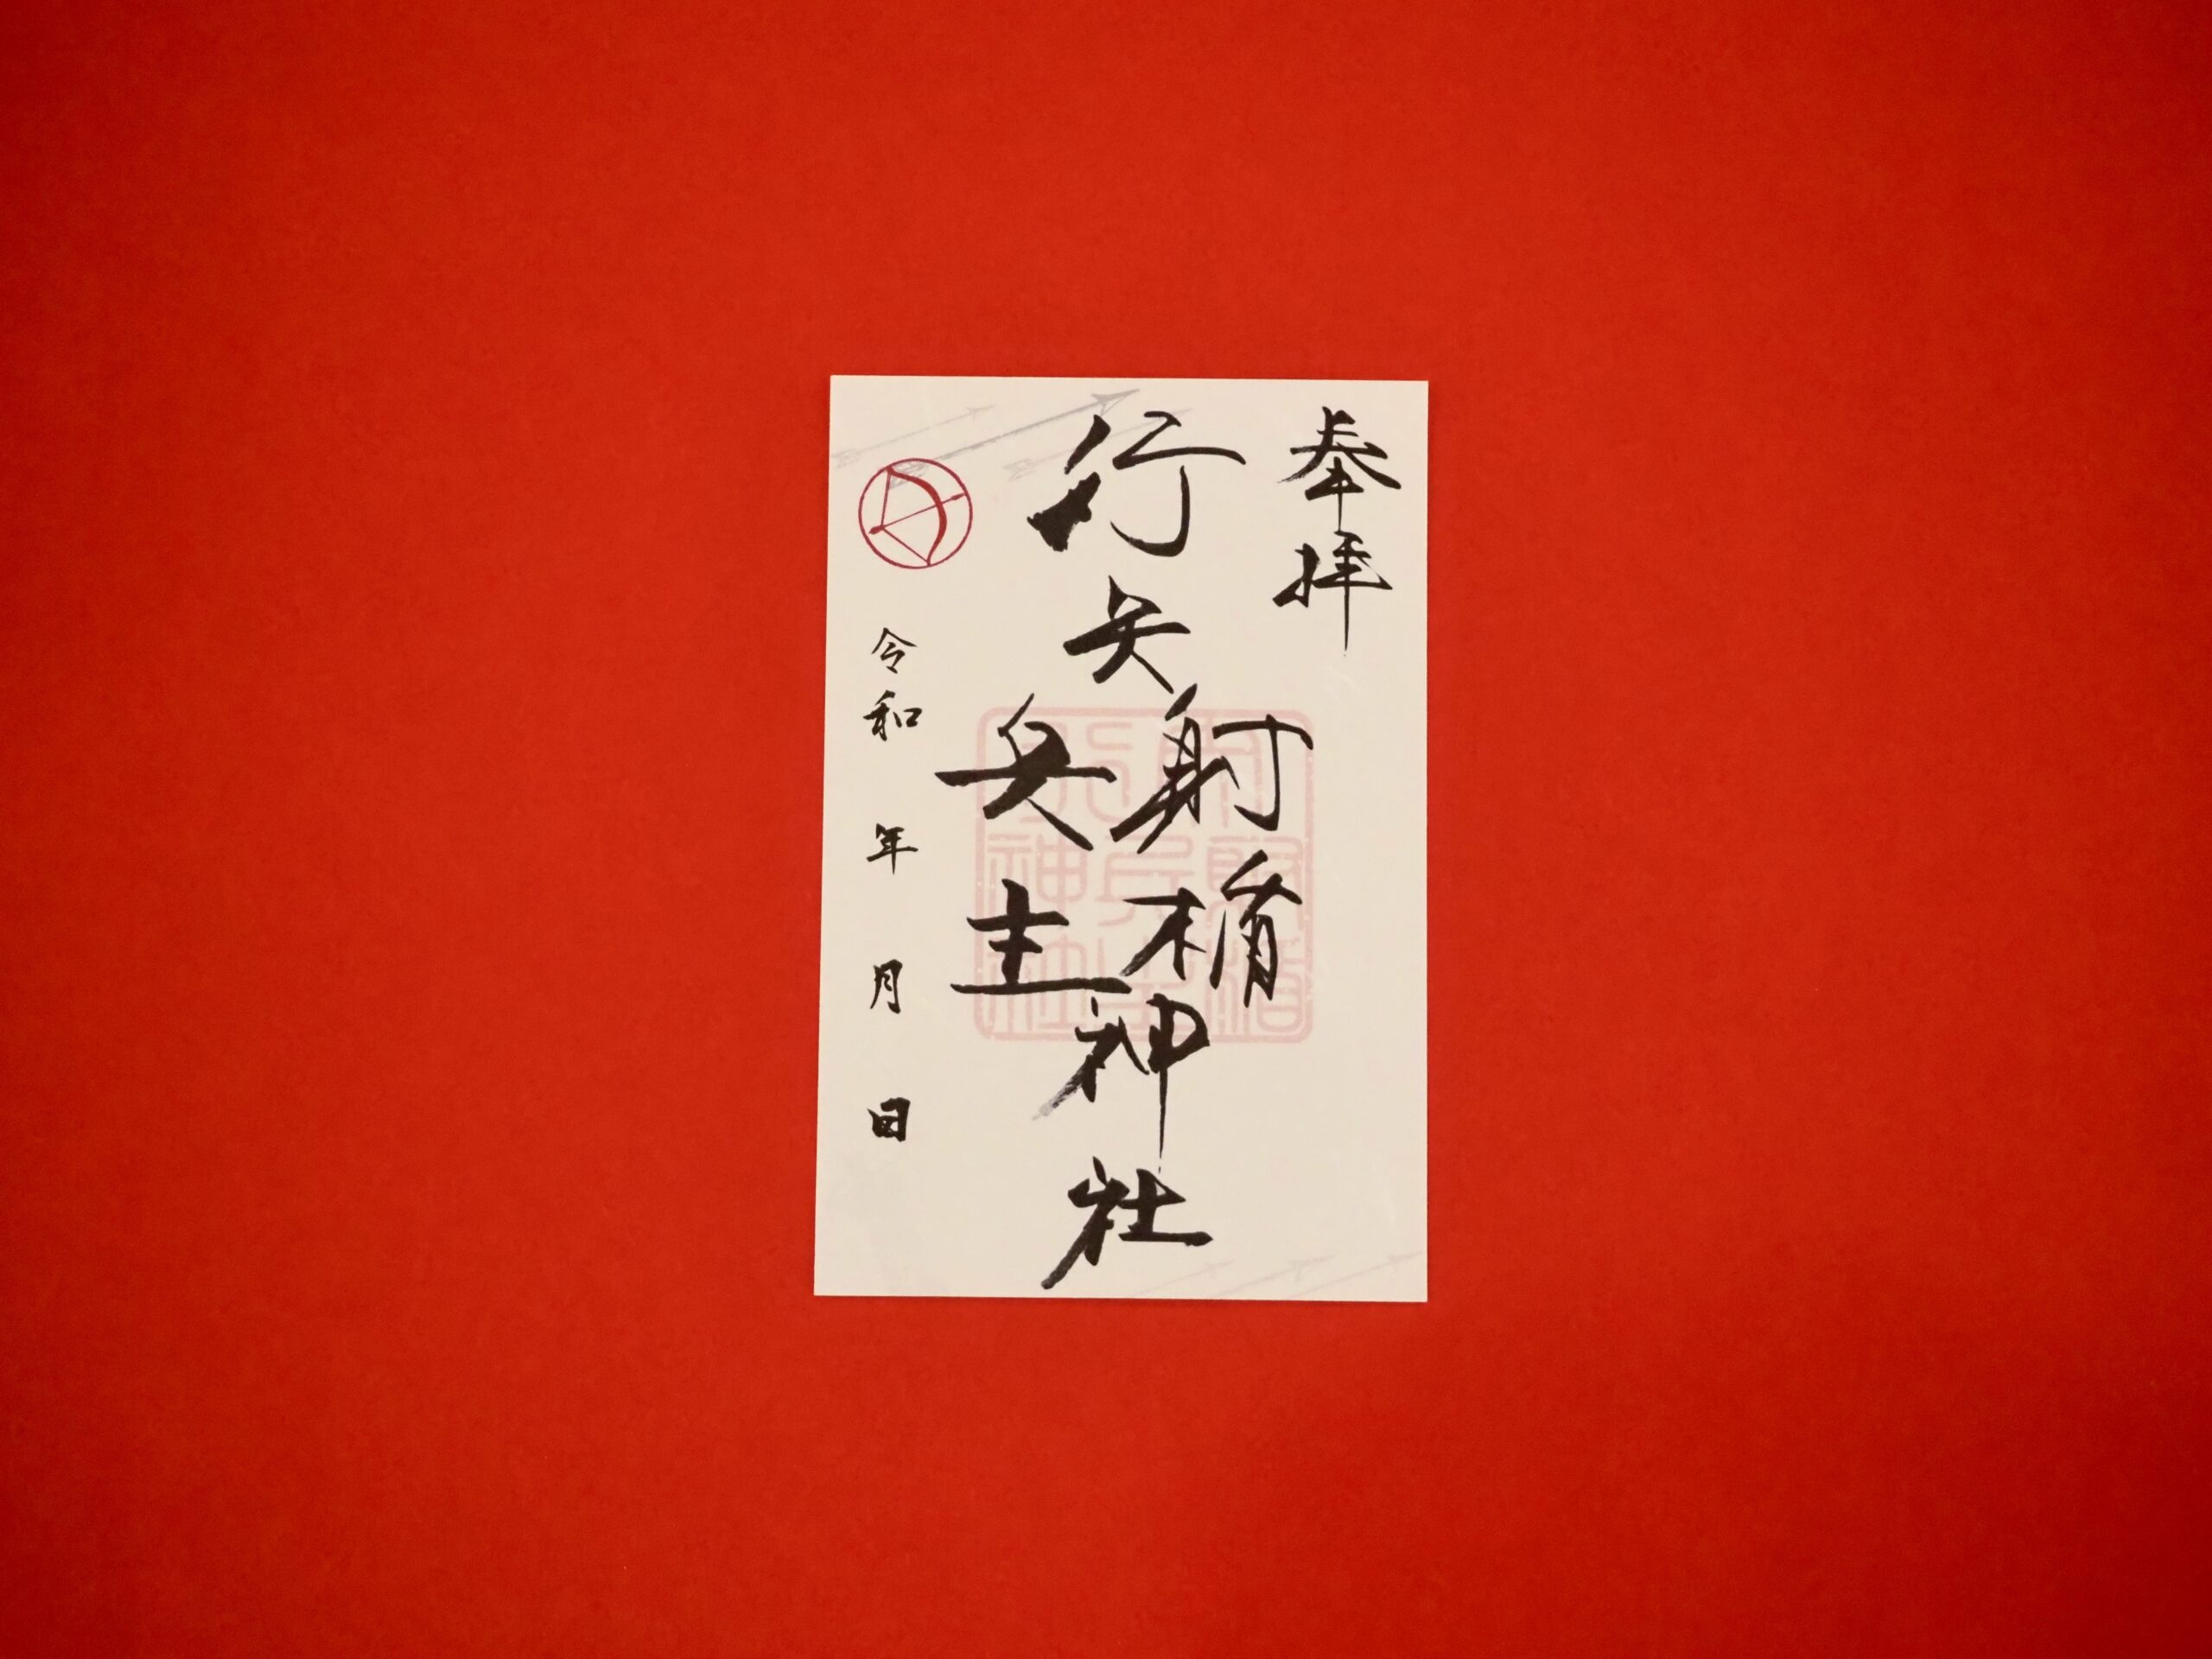 奉拝
行矢
射楯
兵主
神社
令和 年 月 日